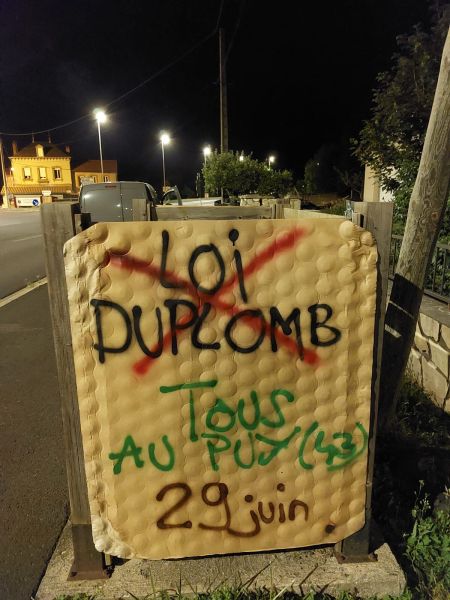 LOi
DUPLOMB
TOUS
AU PUY (43)
29 juin.